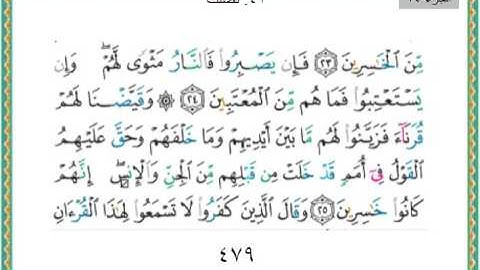 مِّنَ ٱلْخَـٰسِرِينَ ٢٣ فَإِن يَصْبِرُوا۟ فَٱلنَّارُ مَثْوًى لَّهُمْ ۖ وَإِن
يَسْتَعْتِبُوا۟ فَمَا هُم مِّنَ ٱلْمُعْتَبِينَ ٢٤ ۞ وَقَيَّضْنَا لَهُمْ
قُرَنَآءَ فَزَيَّنُوا۟ لَهُم مَّا بَيْنَ أَيْدِيهِمْ وَمَا خَلْفَهُمْ وَحَقَّ عَلَيْهِمُ
ٱلْقَوْلُ فِىٓ أُمَمٍ قَدْ خَلَتْ مِن قَبْلِهِم مِّنَ ٱلْجِنِّ وَٱلْإِنسِ ۖ إِنَّهُمْ
كَانُوا۟ خَـٰسِرِينَ ٢٥ وَقَالَ ٱلَّذِينَ كَفَرُوا۟ لَا تَسْمَعُوا۟ لِهَـٰذَا ٱلْقُرْءَانِ
٤٧٩